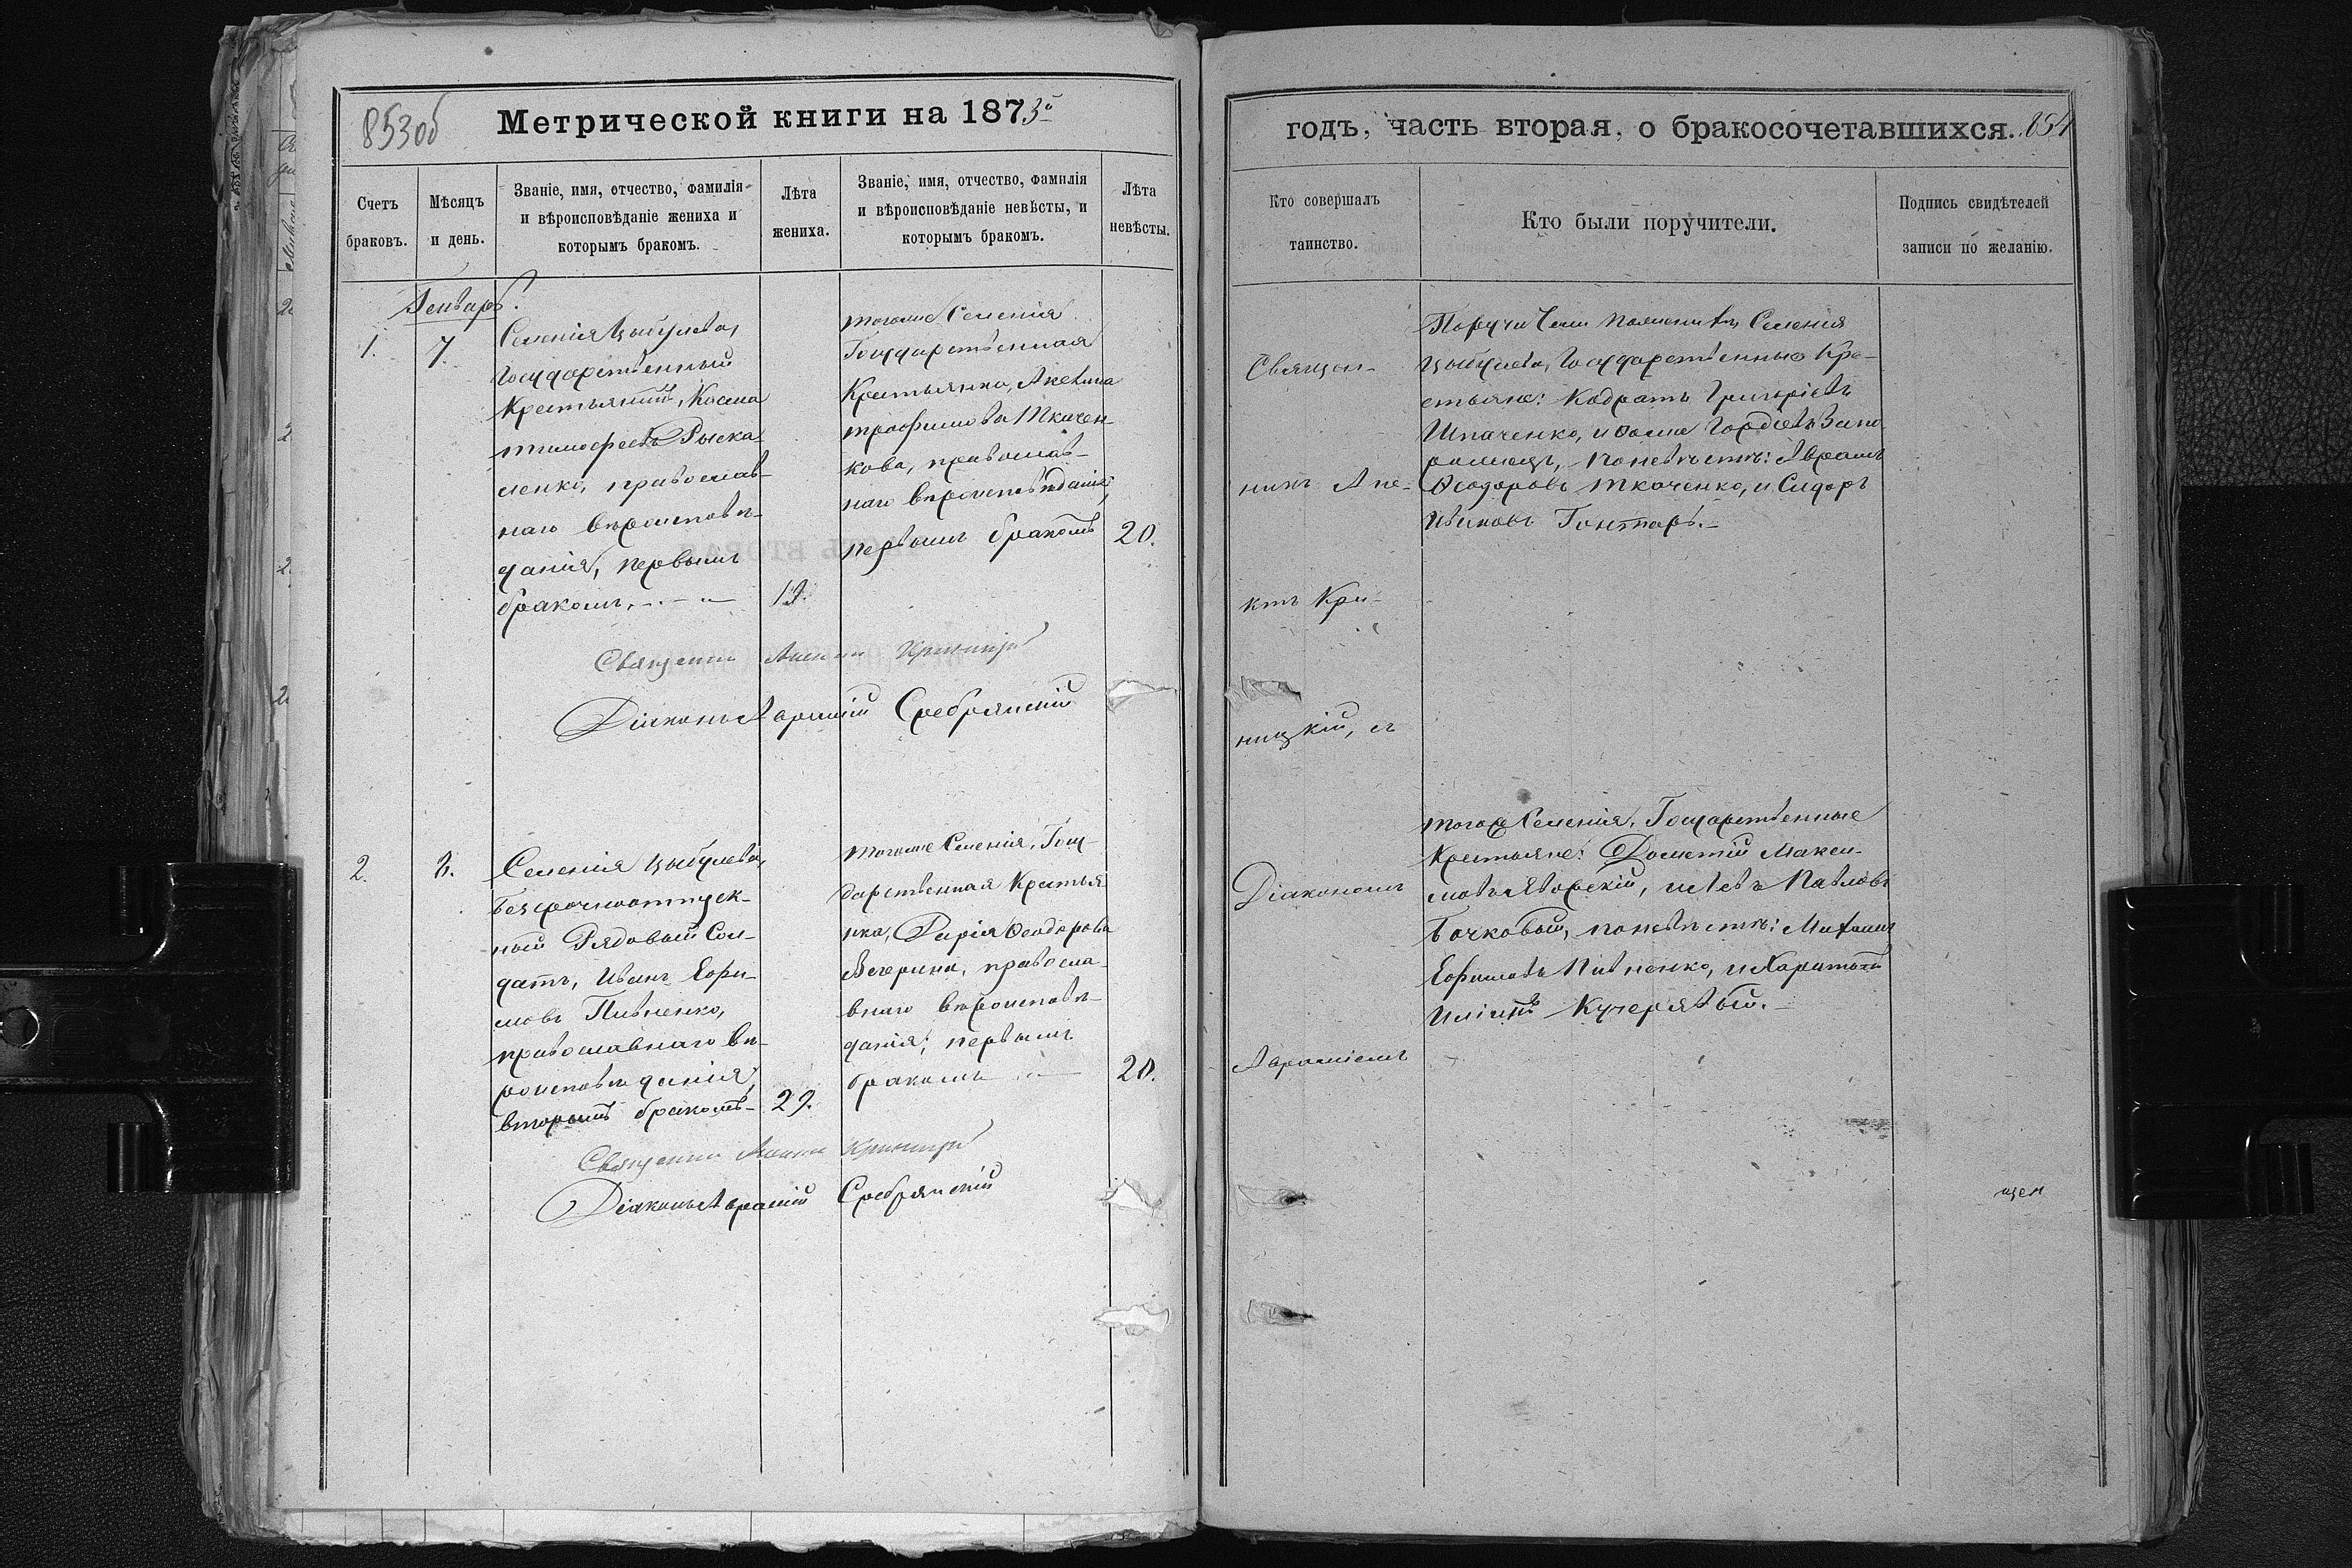 853об
Метрической книги на 1873й
Счетъ браковъ.
Мѣсяцъ и день.
Званіе, имя, отчество, фамилія
и вѣроисповѣданіе жениха и
которымъ бракомъ.
Лѣта жениха.
Званіе, имя, отчество, фамилія
и вѣроисповѣданіе невѣсты, и
которымъ бракомъ.
Лѣта невѣсты.
Генварь.
1.
7.
Селенія Цыбулева,
Государственный
Крестьянинъ, Косма
Тимофеевъ
ленко, православ-
наго вѣроисповѣ-
данія, первымъ
бракомъ,
19.
тогоже Селенія
Государственная
Крестьянка, Акелина
Трофимова Ткачен-
кова, православ-
наго вѣроисповѣданія;
первымъ бракомъ
20.
Священник
Діаконъ Авраамій Сребрянскій
2.
Селенія Цыбулева,
Безсрочноотпуск-
ной Рядовый Сол-
датъ, Иванъ Ефи-
мовъ Пивненко,
православнаго вѣ-
роисповѣданія,
вторымъ бракомъ
29.
тогоже Селенія, Госу-
дарственная Крестья
нка, Дарія Ѳеодорова
правосла-
внаго вѣроисповѣ-
данія; первымъ
бракомъ
20.
Священник
Діаконъ Авраамій Сребрянскій
годъ, часть вторая, о бракосочетавшихся. 854
Кто совершалъ таинство.
Кто были поручители.
Подпись свидѣтелей
записи по желанію.
Священ-
никъ Ани-
китъ Кри-
ницкій, съ
Діакономъ
Авраміемъ
Поручители по женихѣ Селенія
Цыбулева, Государственные Кре-
стьяне: Кодратъ Григорьевъ
Шпаченко, и Ѳома Гордѣевъ Запо
рожецъ, по невѣстѣ: Аврамъ
Ѳеодоровъ Ткаченко, и Сидоръ
Ивановъ Гонтарь.
тогожъ Селенія, Государственные
Крестьяне: Дометій Макси-
мовъ Яворскій, и Левъ Павловъ
Бочковый, по невѣстѣ: Михаилъ
Ефимовъ Пивненко, и Харитонъ
Кучерявый.